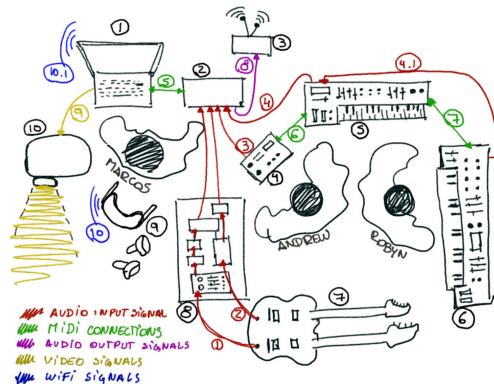 1
10.1
2
3
8
4.1
5
4
9
10
3
6
7
5
4
MARCOS
10
9
ANDREW
ROBYN
6
7
8
2
1
AUDIO INPUT SIGNAL
MIDI CONNECTIONS
AUDIO OUTPUT SIGNALS
VIDEO SIGNALS
WIFI SIGNALS